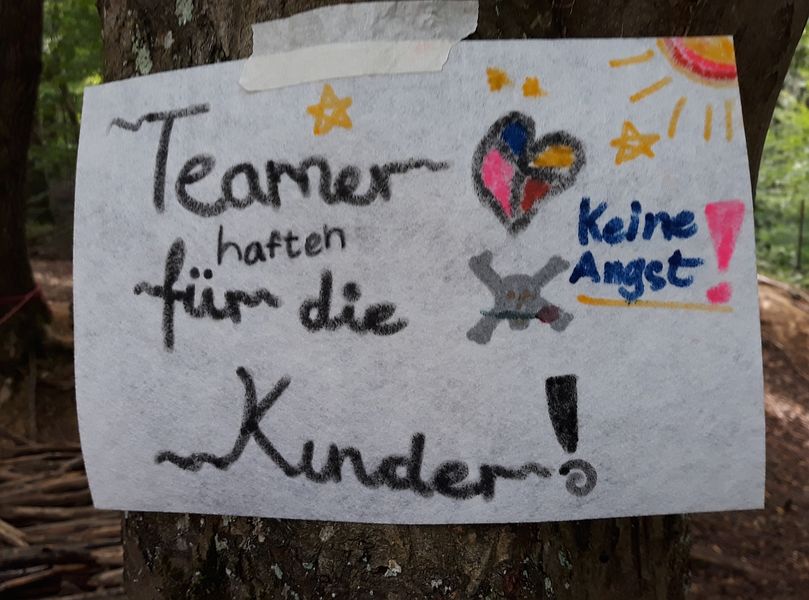 Teamer
haften
für die
Kinder!
Keine
Angst!